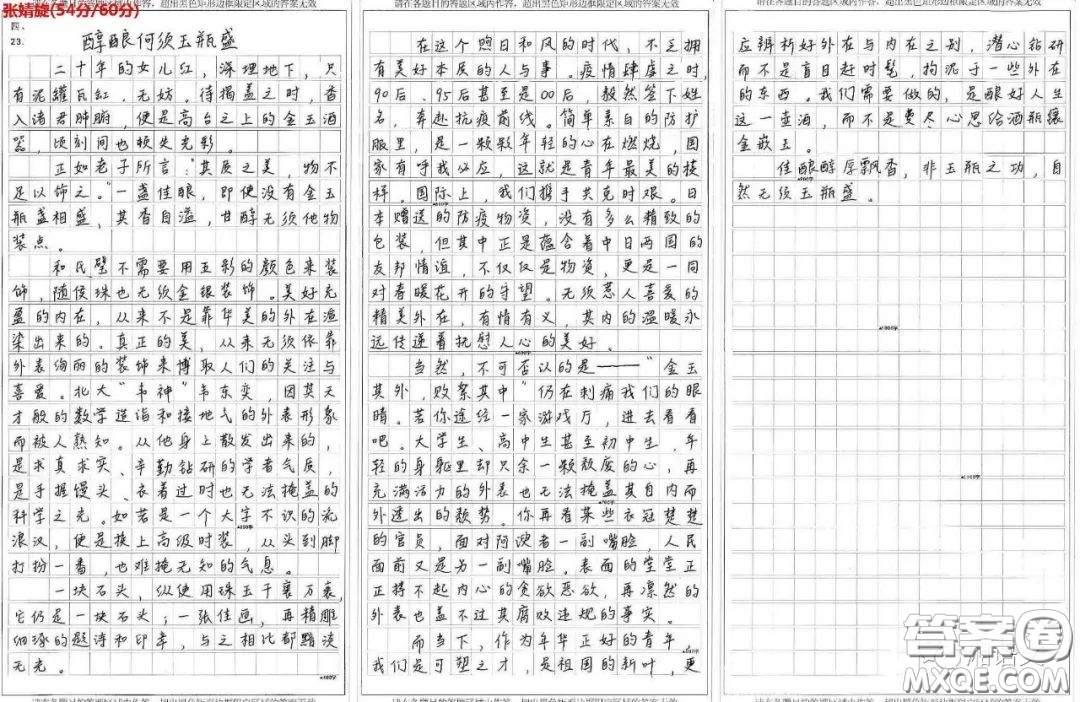 请在各题目的答题区域内作答，超出黑色矩形边框限定区域的答案无效
张婧旋(54分/60分)
四、
23.
醇酿何须玉瓶盛
二十年的女儿红，深埋地下，只
有泥罐瓦缸，无妨。待揭盖之时，香
入诸君肺腑，便是高台之上的金玉酒
器，顷刻间也顿失光彩。
正如老子所言："其质之美，物不
足以饰之。"一盏佳酿，即便没有金玉
瓶盏相盛，其香自溢，甘醇无须他物
装点。
和氏璧不需要用五彩的颜色来装
饰，随侯珠也无须金银装饰。美好充
盈的内在，从来不是靠华美的外在渲
染出来的。真正的美，从来无须依靠
外表绚丽的装饰来博取人们的关注与
喜爱。北大"韦神"韦东奕，因其天
才般的数学造诣和接地气的外表形象
而被人熟知。从他身上散发出来的，
是求真求实、辛勤钻研的学者气质，
是手握馒头、衣着过时也无法掩盖的
科学之光。如若是一个大字不识的流
浪汉，便是换上高级时装，从头到脚
打扮一番，也难掩无知的气息。
一块石头，纵使用珠玉千裹万裹，
它仍是一块石头；一张佳画，再精雕
细琢的题诗和印章，与之相比都黯淡
无光。
请在各题目的答题区域内作答，超出黑色矩形边框限定区域的答案无效
在这个煦日和风的时代，不乏拥
有美好本质的人与事。疫情肆虐之时，
90后、95后甚至是00后，毅然签下姓
名，奔赴抗疫前线。简单素白的防护
服里，是一颗颗年轻的心在燃烧，国
家有呼我必应，这就是青年最美的模
样。国际上，我们携手共克时艰。日
本赠送的防疫物资，没有多么精致的
包装，但其中正是蕴含着中日两国的
友邦情谊，不仅仅是物资，更是一同
对春暖花开的守望。无须惹人喜爱的
精美外在，有情有义，其内的温暖永
远传递着抚慰人心的美好。
当然，不可否认的是——"金玉
其外，败絮其中"仍在刺痛我们的眼
睛。若你途经一家游戏厅，进去看看
吧。大学生、高中生甚至初中生，年
轻的身躯里却只余一颗颓废的心，再
充满活力的外表也无法掩盖其自内而
外透出的颓势。你再看某些衣冠楚楚
的官员，面对阿谀者一副嘴脸，人民
面前又是另一副嘴脸。表面的堂堂正
正持不起内心的贪欲恶欲，再凛然的
外表也盖不过其腐败违规的事实。
而当下，作为年华正好的青年，
我们是可塑之才，是祖国的新叶，更
请在各题目的答题区域内作答，超出黑色矩形边框限定区域的答案无效
应辨析好外在与内在之别，潜心钻研
而不是盲目赶时髦，拘泥于一些外在
的东西。我们需要做的，是酿好人生
这一壶酒，而不是更尽心思给酒瓶镶
金嵌玉。
佳酿醇厚飘香，非玉瓶之功，自
然无须玉瓶盛。
答案圈
MXQE.COM